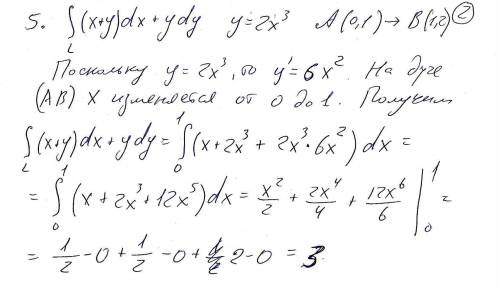 5. ∫_L (x+y)dx + ydy   y=2x³   A(0,1) → B(1,2) ②
Поскольку y=2x³, то y'=6x². На дуге
(AB) x изменяется от 0 до 1. Получим
∫_L (x+y)dx + ydy = ∫₀¹ (x+2x³ + 2x³·6x²) dx =
= ∫₀¹ (x + 2x³ + 12x⁵) dx = x²/2 + 2x⁴/4 + 12x⁶/6 |₀¹ =
= 1/2 - 0 + 1/2 - 0 + 2 - 0 = 3